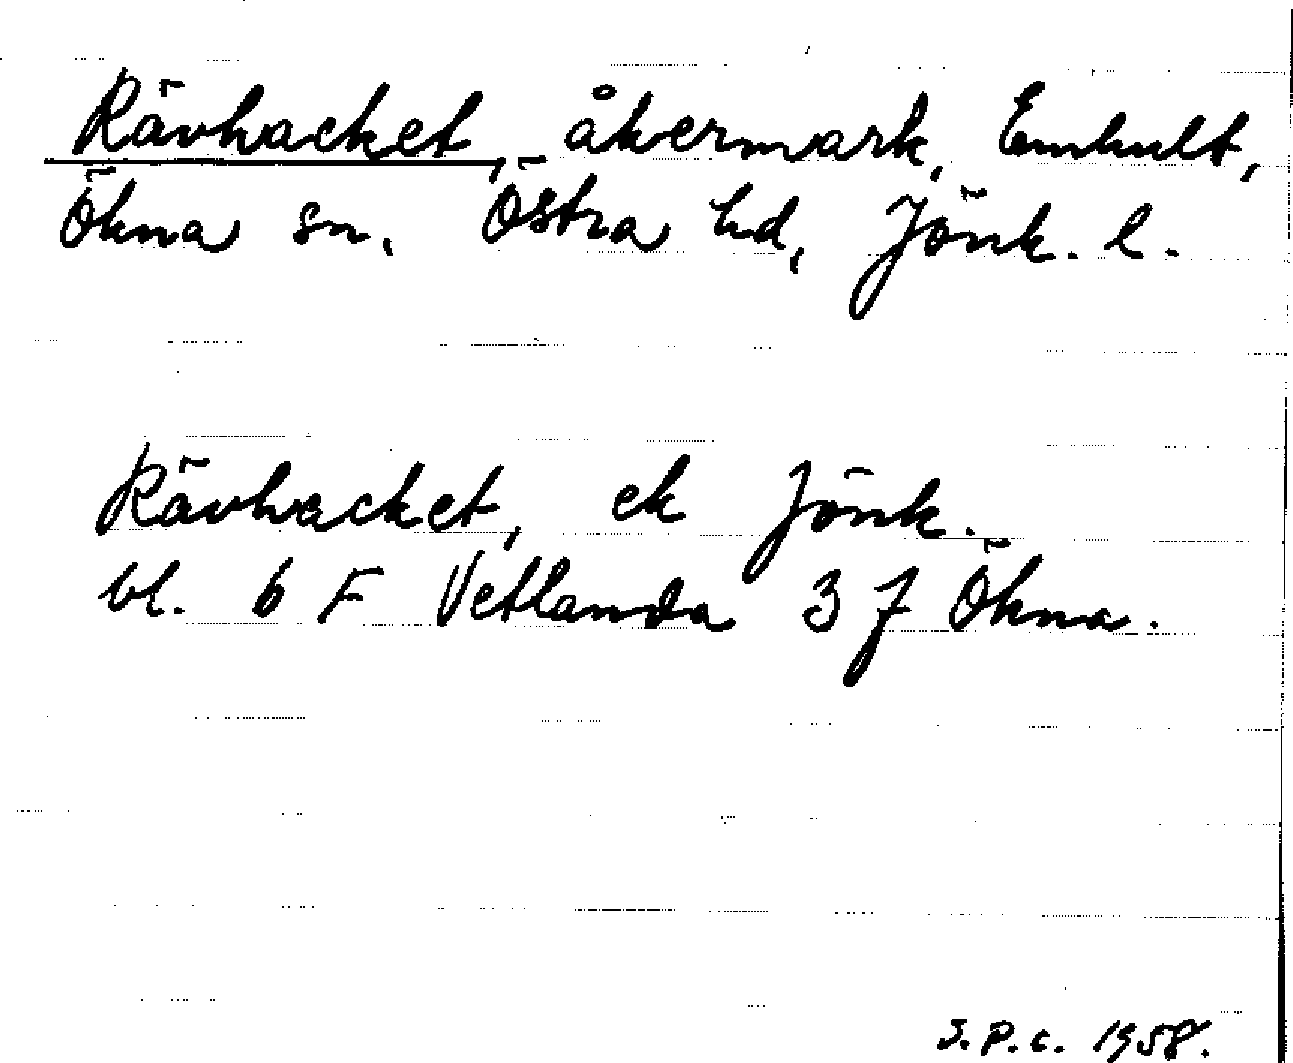 Rävhacket, åkermark, Emhult,
Öhna sn, Östra hd, Jönk. l.
Rävhacket, ek Jönk.
bl. 6 F Vetlanda 3 J Öhna.
S.P.C. 1958.